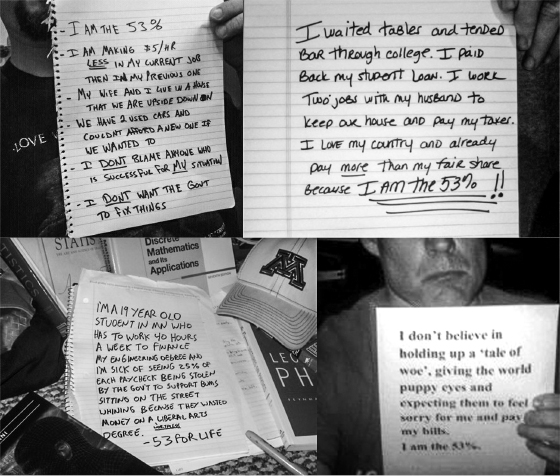 - I AM THE 53%
- I AM MAKING $5/HR
LESS IN MY CURRENT JOB
THEN IN MY PREVIOUS ONE
- MY WIFE AND I LIVE IN A HOUSE
THAT WE ARE UPSIDE DOWN ON
- WE HAVE 2 USED CARS AND
COULDNT AFFORD A NEW ONE IF
WE WANTED TO
- I DONT BLAME ANYONE WHO
IS SUCCESSFUL FOR MY SITUATION
- I DONT WANT THE GOVT
TO FIX THINGS
LOVE
I waited tables and tended
Bar through college. I paid
Back my student loan. I work
Two jobs with my husband to
keep our house and pay my taxes.
I love my country and already
pay more than my fair share
because I AM the 53% !!
STATIS
Discrete
Mathematics
and its
Applications
M
I'M A 19 YEAR OLD
STUDENT IN MN WHO
HAS TO WORK 40 HOURS
A WEEK TO FINANCE
MY ENGINEERING DEGREE AND
I'M SICK OF SEEING 25% OF
EACH PAYCHECK BEING STOLEN
BY THE GOVT TO SUPPORT BUMS
SITTING ON THE STREET
WHINING BECAUSE THEY WASTED
MONEY ON A LIBERAL ARTS
DEGREE.
- 53 FOR LIFE
LEC
PH
I don't believe in
holding up a 'tale of
woe', giving the world
puppy eyes and
expecting them to feel
sorry for me and pay
my bills.
I am the 53%.